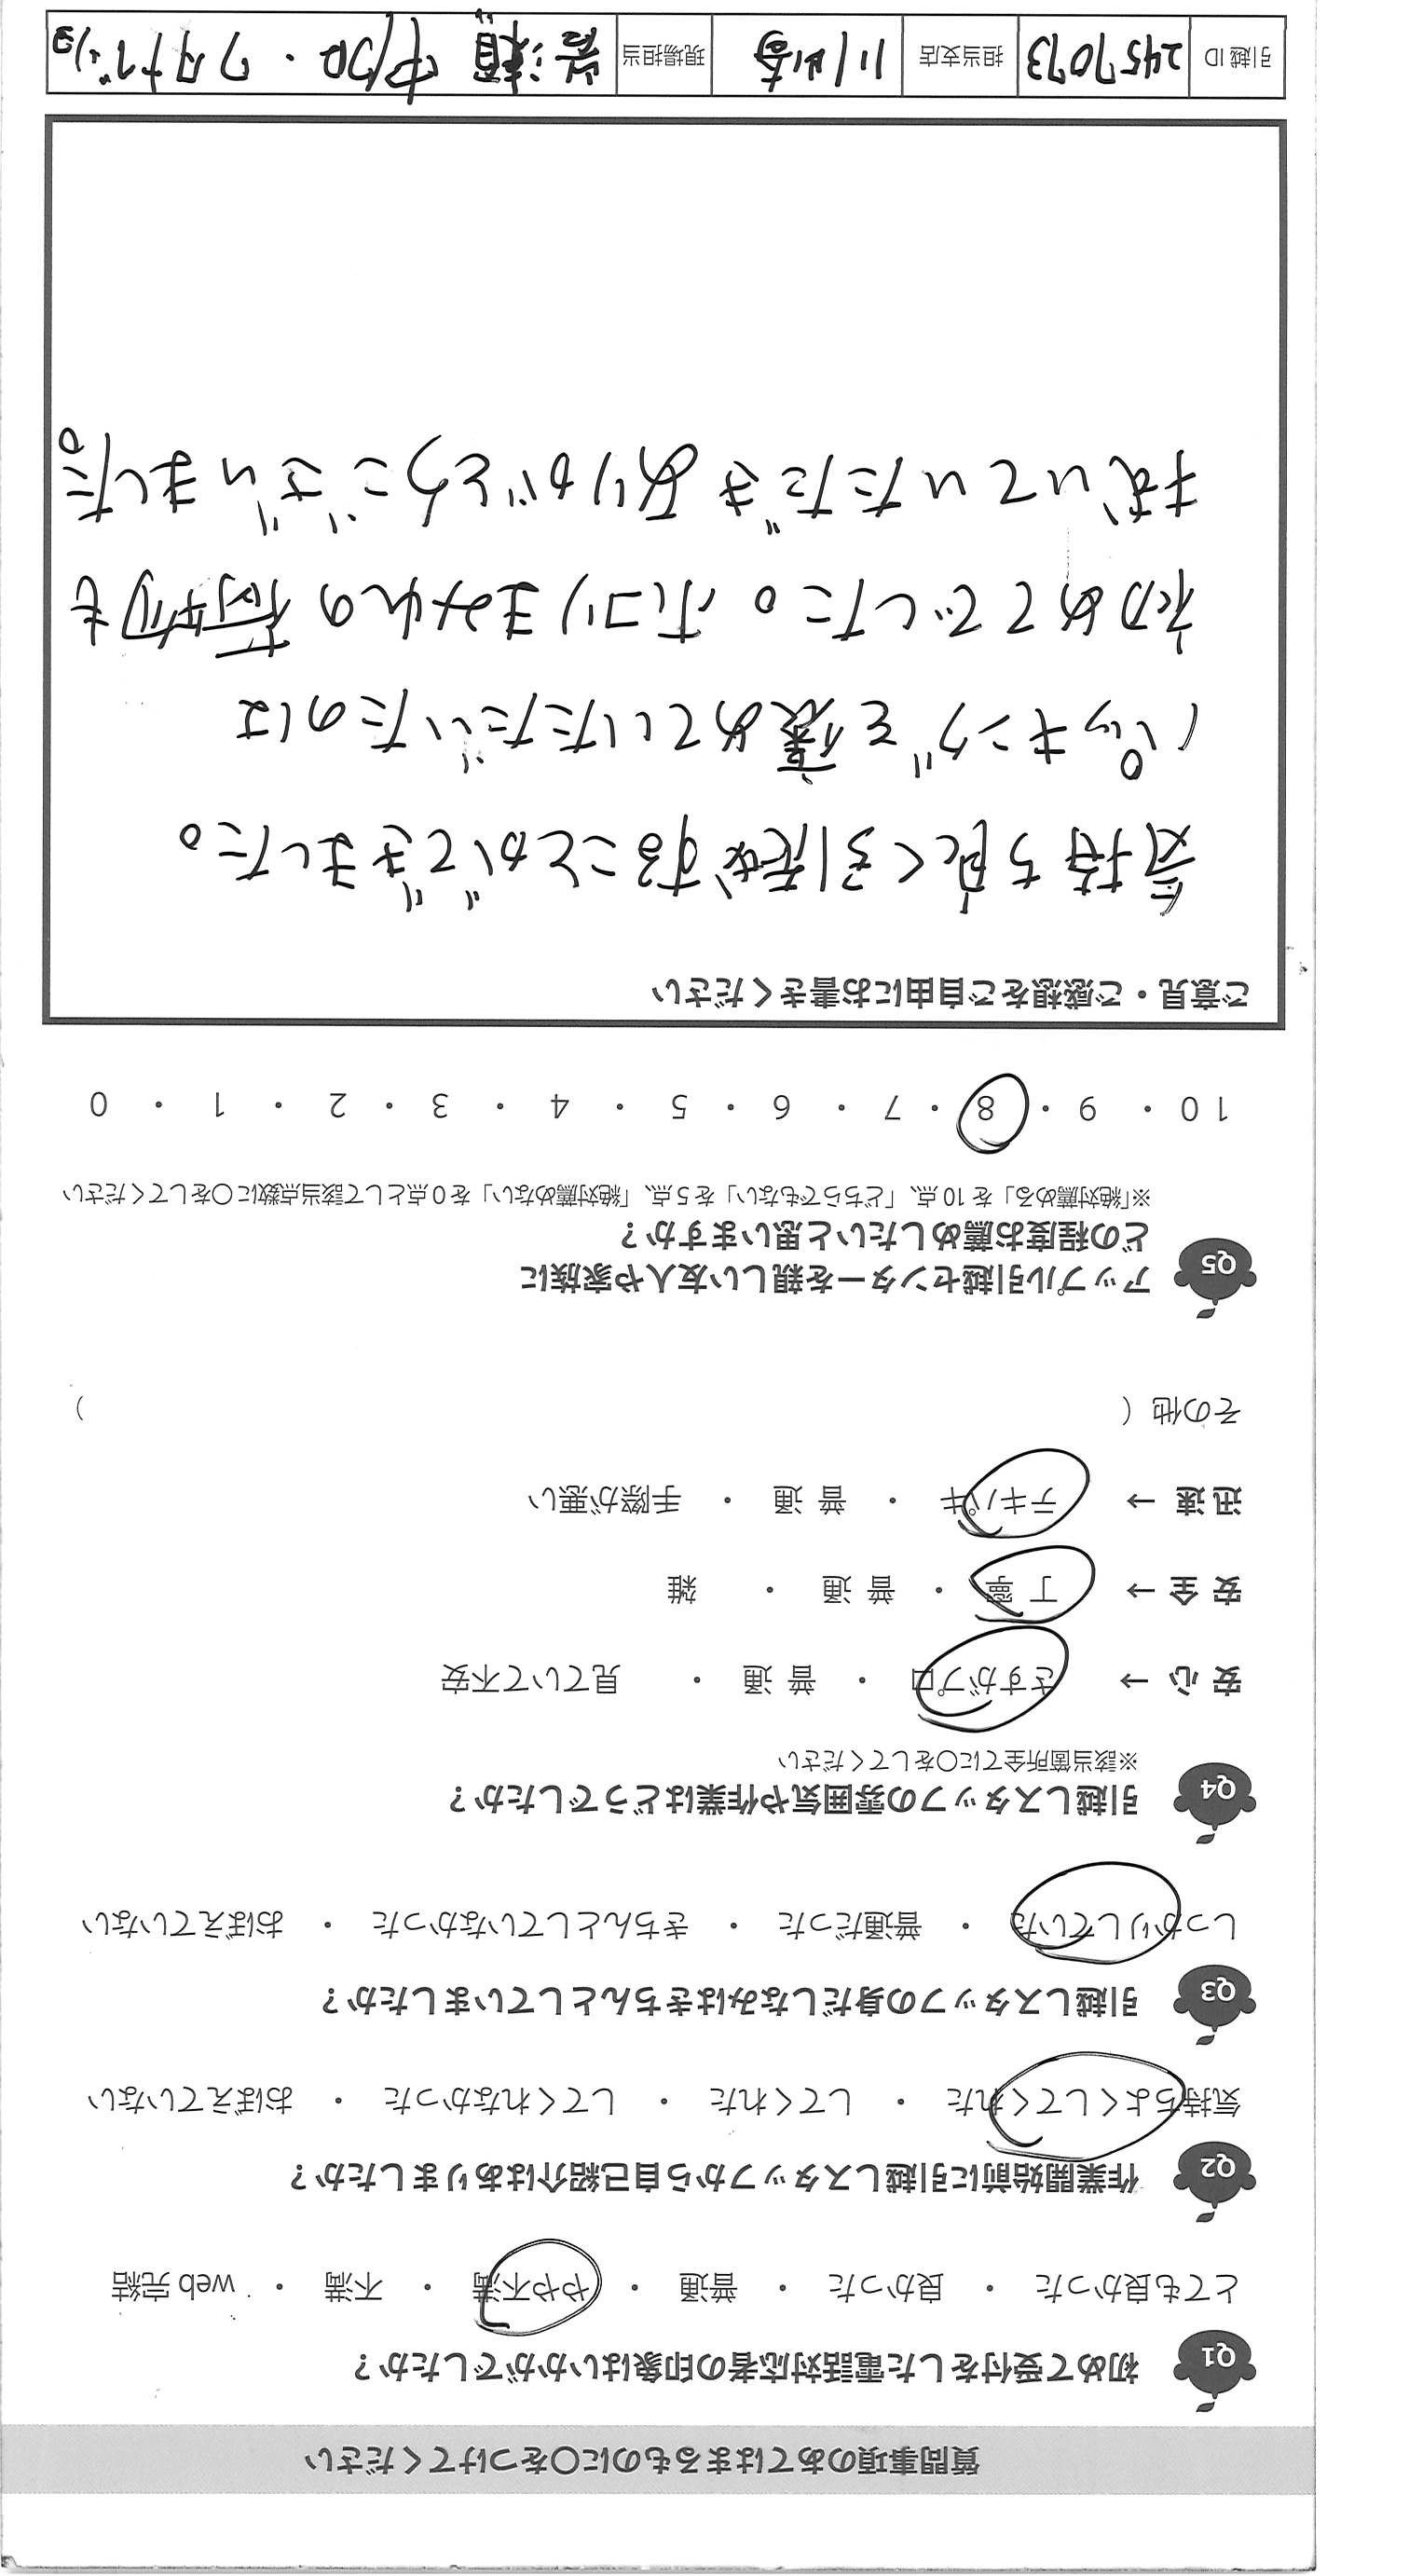 質問事項のあてはまるものに〇をつけてください
Q1 初めて受付をした電話対応者の印象はいかがでしたか？
とても良かった ・ 良かった ・ 普通 ・ やや不満 ・ 不満 ・ web 完結
Q2 作業開始前に引越しスタッフから自己紹介はありましたか？
気持ちよくしてくれた ・ してくれた ・ してくれなかった ・ おぼえていない
Q3 引越しスタッフの身だしなみはきちんとしていましたか？
しっかりしていた ・ 普通だった ・ きちんとしていなかった ・ おぼえていない
Q4 引越しスタッフの雰囲気や作業はどうでしたか？
※該当箇所全てに〇をしてください
安 心 → さすがプロ ・ 普 通 ・ 見ていて不安
安 全 → 丁 寧 ・ 普 通 ・ 雑
迅 速 → テキパキ ・ 普 通 ・ 手際が悪い
その他（ ）
Q5 アップル引越センターを親しい友人や家族に
どの程度お薦めしたいと思いますか？
※「絶対薦める」を 10 点、「どちらでもない」を 5 点、「絶対薦めない」を 0 点として該当点数に〇をしてください
10 ・ 9 ・ 8 ・ 7 ・ 6 ・ 5 ・ 4 ・ 3 ・ 2 ・ 1 ・ 0
ご意見・ご感想をご自由にお書きください
気持ち良く引越することができました。
パッキングを褒めていただいたのは
初めてでした。ホコリまみれの荷物も
拭いていただきありがとうございました。
引越 ID 2457073 担当支店 川崎 現場担当 岩瀬